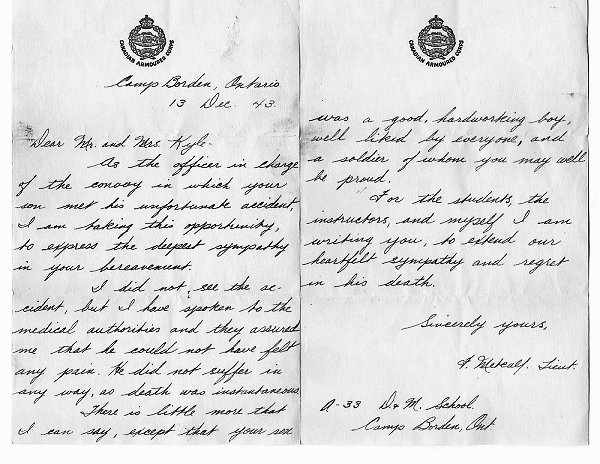 CANADIAN ARMOURED CORPS
Camp Borden, Ontario
13 Dec 43.
Dear Mr. and Mrs. Kyle-
As the officer in charge
of the convoy in which your
son met his unfortunate accident,
I am taking this opportunity,
to express the deepest sympathy
in your bereavement.
I did not see the ac-
cident, but I have spoken to the
medical authorities and they assured
me that he could not have felt
any pain. He did not suffer in
any way, as death was instantaneous
There is little more that
I can say, except that your son
CANADIAN ARMOURED CORPS
was a good, hardworking boy,
well liked by everyone, and
a soldier of whom you may well
be proud.
For the students, the
instructors, and myself I am
writing you, to extend our
heartfelt sympathy and regret
in his death.
Sincerely yours,
Metcalf. Lieut.
A-33 D & M. School.
Camp Borden, Ont.